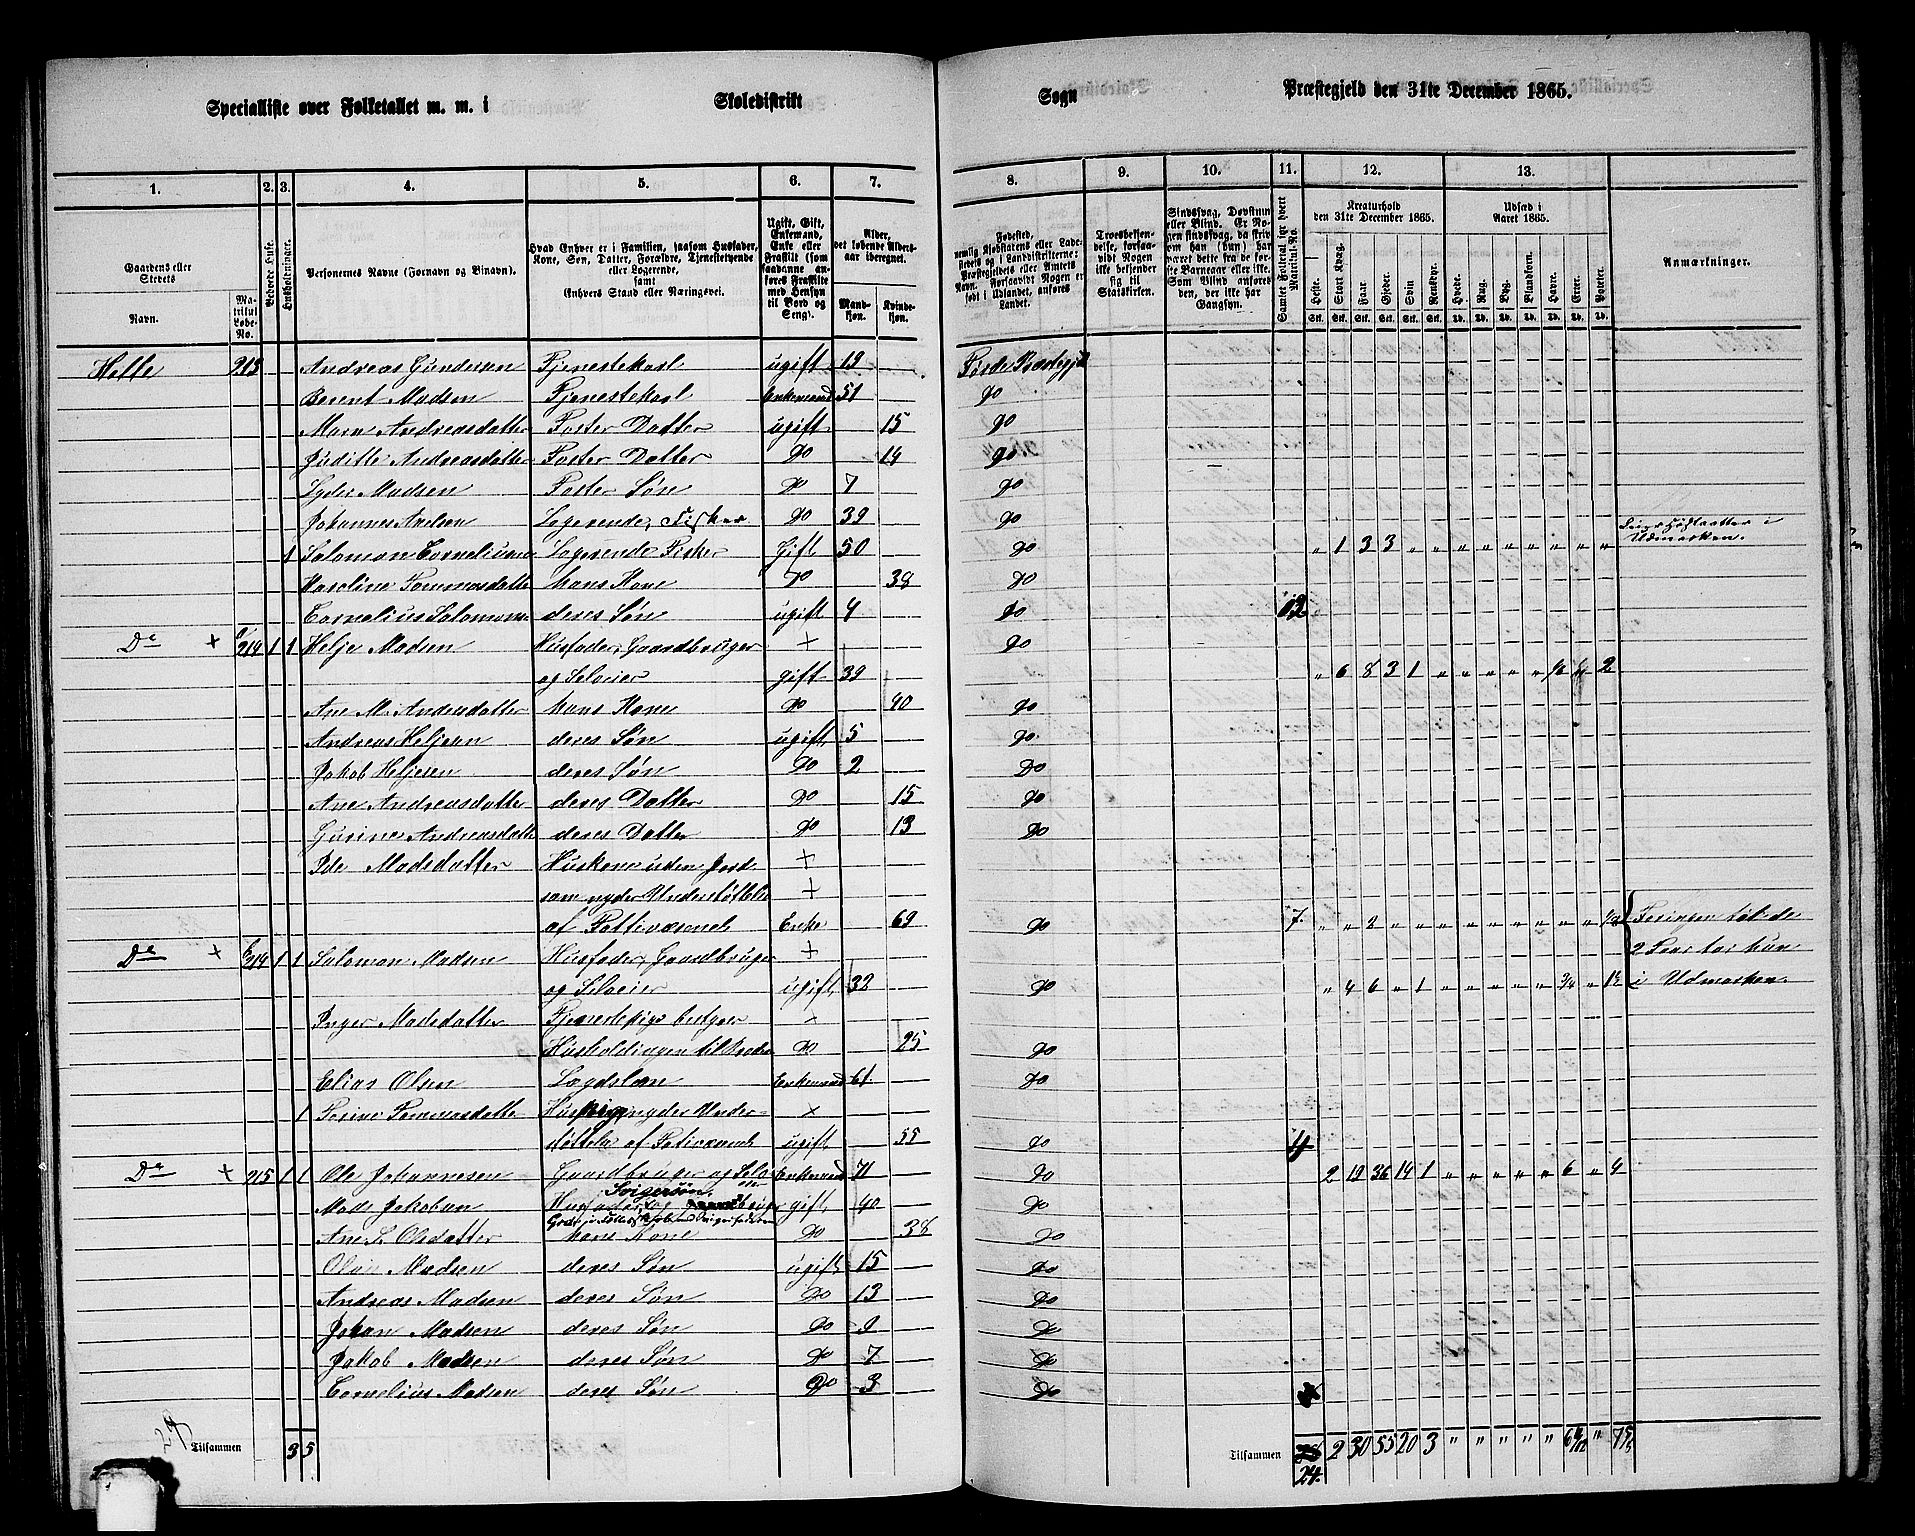 Specialliste over Folketallet m. m. i Skoledistrikt Sogn Præstegjeld den 31te December 1865.
1. 2. 3. 4. 5. 6. 7. 8. 9. 10. 11. 12. 13.
Gaardens eller Stedets Navn. Matrikul Løbe-No. Beboede Huse. Husholdninger. Personernes Navne (Fornavn og Binavn). Hvad Enhver er i Familien, saasom Husfader, Kone, Søn, Datter, Forældre, Tjenestetyende eller Logerende, samt Enhvers Stand eller Næringsvei. Ugift, Gift, Enkemand, Enke eller Fraskilt (som saadanne anføres Fraskilte med Hensyn til Bord og Seng). Alder, det løbende Aldersaar iberegnet. Mandkjøn. Kvindekjøn.
Fødested, nemlig Kjøbstadens eller Ladestedets og i Landdistrikterne: Præstegjeldets eller Amtets Navn. Forsaavidt Nogen er født i Udlandet, anføres Landet. Troesbekjendelse, forsaavidt Nogen ikke bekjender sig til Statskirken. Sindssvag, Døvstum eller Blind. Samlet Folketal for hvert Matrikul-No. Kreaturhold den 31te December 1865. Udsæd i Aaret 1865. Anmærkninger.
Heste. Stort Kvæg. Faar. Gjeder. Sviin. Rensdyr. Hvede. Rug. Byg. Blandkorn. Havre. Erter. Poteter.
Helle 213 Andreas Gundersen Tjenestekarl ugift 19 Førde Præstegjld
Berent Madsen Tjenestekarl Enkemand 51 do
Marn Andreasdatter Foster Datter ugift 15 do
Juditte Andreasdatter Foster Datter do 14 do
Lyder Madsen Foster Søn do 7 do
Johannes Axelsen Logerende, Fisker do 39 do
1 Salomon Cornelius Logerende Fisker Gift 50 do " 1 3 3 " " " " " " " " " Udmarken.
Karoline Tommasdatter hans Kone do 38 do
Cornelius Salomons deres Søn ugift 4 do 12
Do + 214 1 1 Helje Madsen Husfader, Gaardbruger + do
og Selveier gift 39 " 6 8 3 1 " " " " " 2
Ane M. Andersdatter hans Kone do 40 do
Andreas Heljesen deres Søn ugift 5 do
Jakob Heljesen deres Søn do 2 do
Ane Andreasdatter deres Datter do 15 do
Gurine Andreasdatter deres Datter do 13 do
Ide Madsdatter Huskone uden Jord +
som nyder Understøttelse +
af Fattivæsenet Enke 69 do 7. " " 2 " " " " " " " " " Foringen til de
Do + 214 1 1 Salomon Madsen Husfader, Gaardbruger + 2 Faar tar hun
og Selveier ugift 32 do " 4 6 " 1 " " " " " 3/4 " 1½ i Udmarken.
Inger Madsdatter Tjenestepige bestyrer ×
Husholdningen til Broder do 25 do
Elias Olsen Lægdslem Enkemand 61 do
1 Tosine Tommasdatter Huspige, nyder Under- ×
støttelse af Fativæsenet ugift 55 do 4
Do + 215 1 1 Ole Johannesen Gaardbruger og Selv- Enkemand 71 do 2 19 36 14 1 " " " " " 6 " 4
Svigersøn.
Mads Jakobsen Husfader, gift 40 do
Ane L. Olsdatter hans Kone do 38 do
Olai Madsen deres Søn ugift 15 do
Andreas Madsen deres Søn do 13 do
Johan Madsen deres Søn do 9 do
Jakob Madsen deres Søn do 7 do
Cornelius Madsen deres Søn do 3 do
Tilsammen 3 5 Tilsammen 24. 2 30 55 20 3 " " " " "